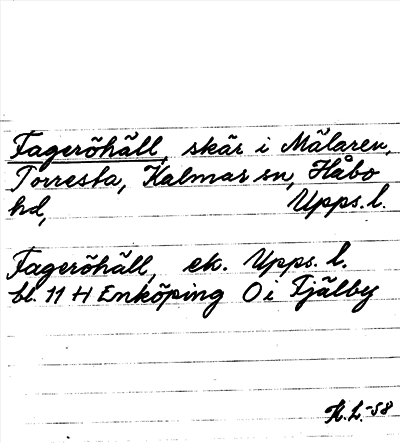 Fageröhäll, skär i Mälaren,
Torresta, Kalmar sn, Håbo
hd, Upps. l.
Fageröhäll, ek. Upps. l.
bl. 11 H Enköping O i Tjälby
H.L.-58